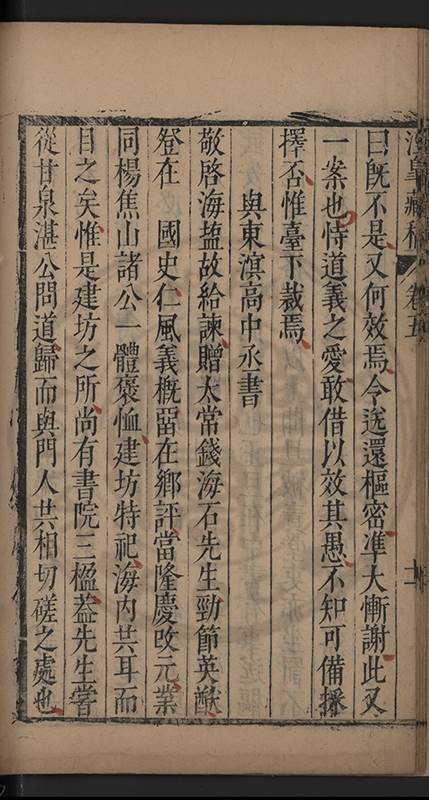 藏稿 卷五
曰旣不是又何效焉今送還樞密準大慚謝此又
一案也恃道義之愛敢借以效其愚不知可備採
擇否惟臺下裁焉
與東溟高中丞書
敬啓海鹽故給諫贈太常錢海石先生勁節英猷
登在 國史仁風義概留在鄉評當隆慶改元業
同楊焦山諸公一體褒恤建坊特祀海内共耳而
目之矣惟是建坊之所尚有書院三楹葢先生嘗
從甘泉湛公問道歸而與門人共相切磋之處也